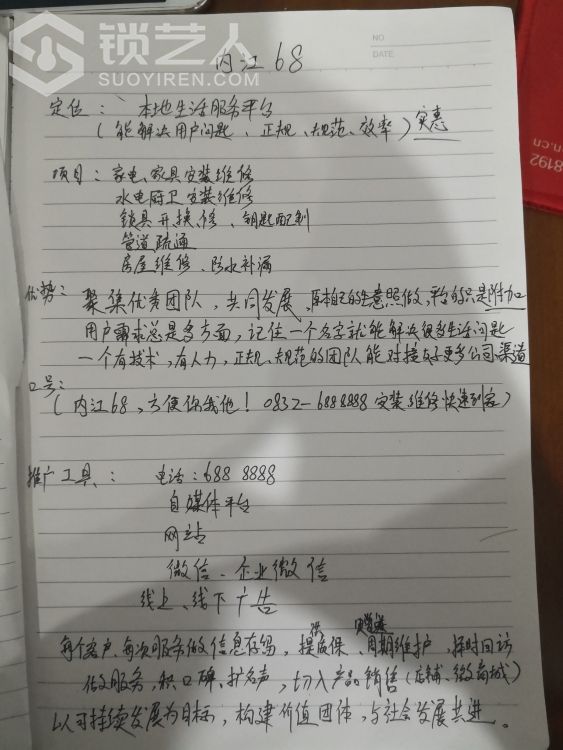 锁艺人
SUOYIREN.COM
NO.
DATE
内江68
定位：本地生活服务平台
（能解决用户问题、正规、规范、效率）实惠
项目：家电、家具安装维修
水电厨卫安装维修
锁具开换修、钥匙配制
管道疏通
房屋维修、防水补漏
优势：聚集优秀团队，共同发展，原本自己的生意照做，平台的只是附加
用户需求总是多方面，记住一个名字就能解决很多生活问题
一个有技术，有人力，正规、规范的团队能对接更多公司渠道
口号：
（内江68，方便你我他！0832-6888888安装维修快速到家）
推广工具：电话：688 8888
自媒体平台
网站
微信、企业微信
线上、线下广告
每个客户、每次服务做信息存留，提供质保、周期维护，择时回访
做服务，积口碑、扩名声，切入产品销售（店铺、微商城）
以可持续发展为目标，构建价值团体，与社会发展共进。
8192
cn